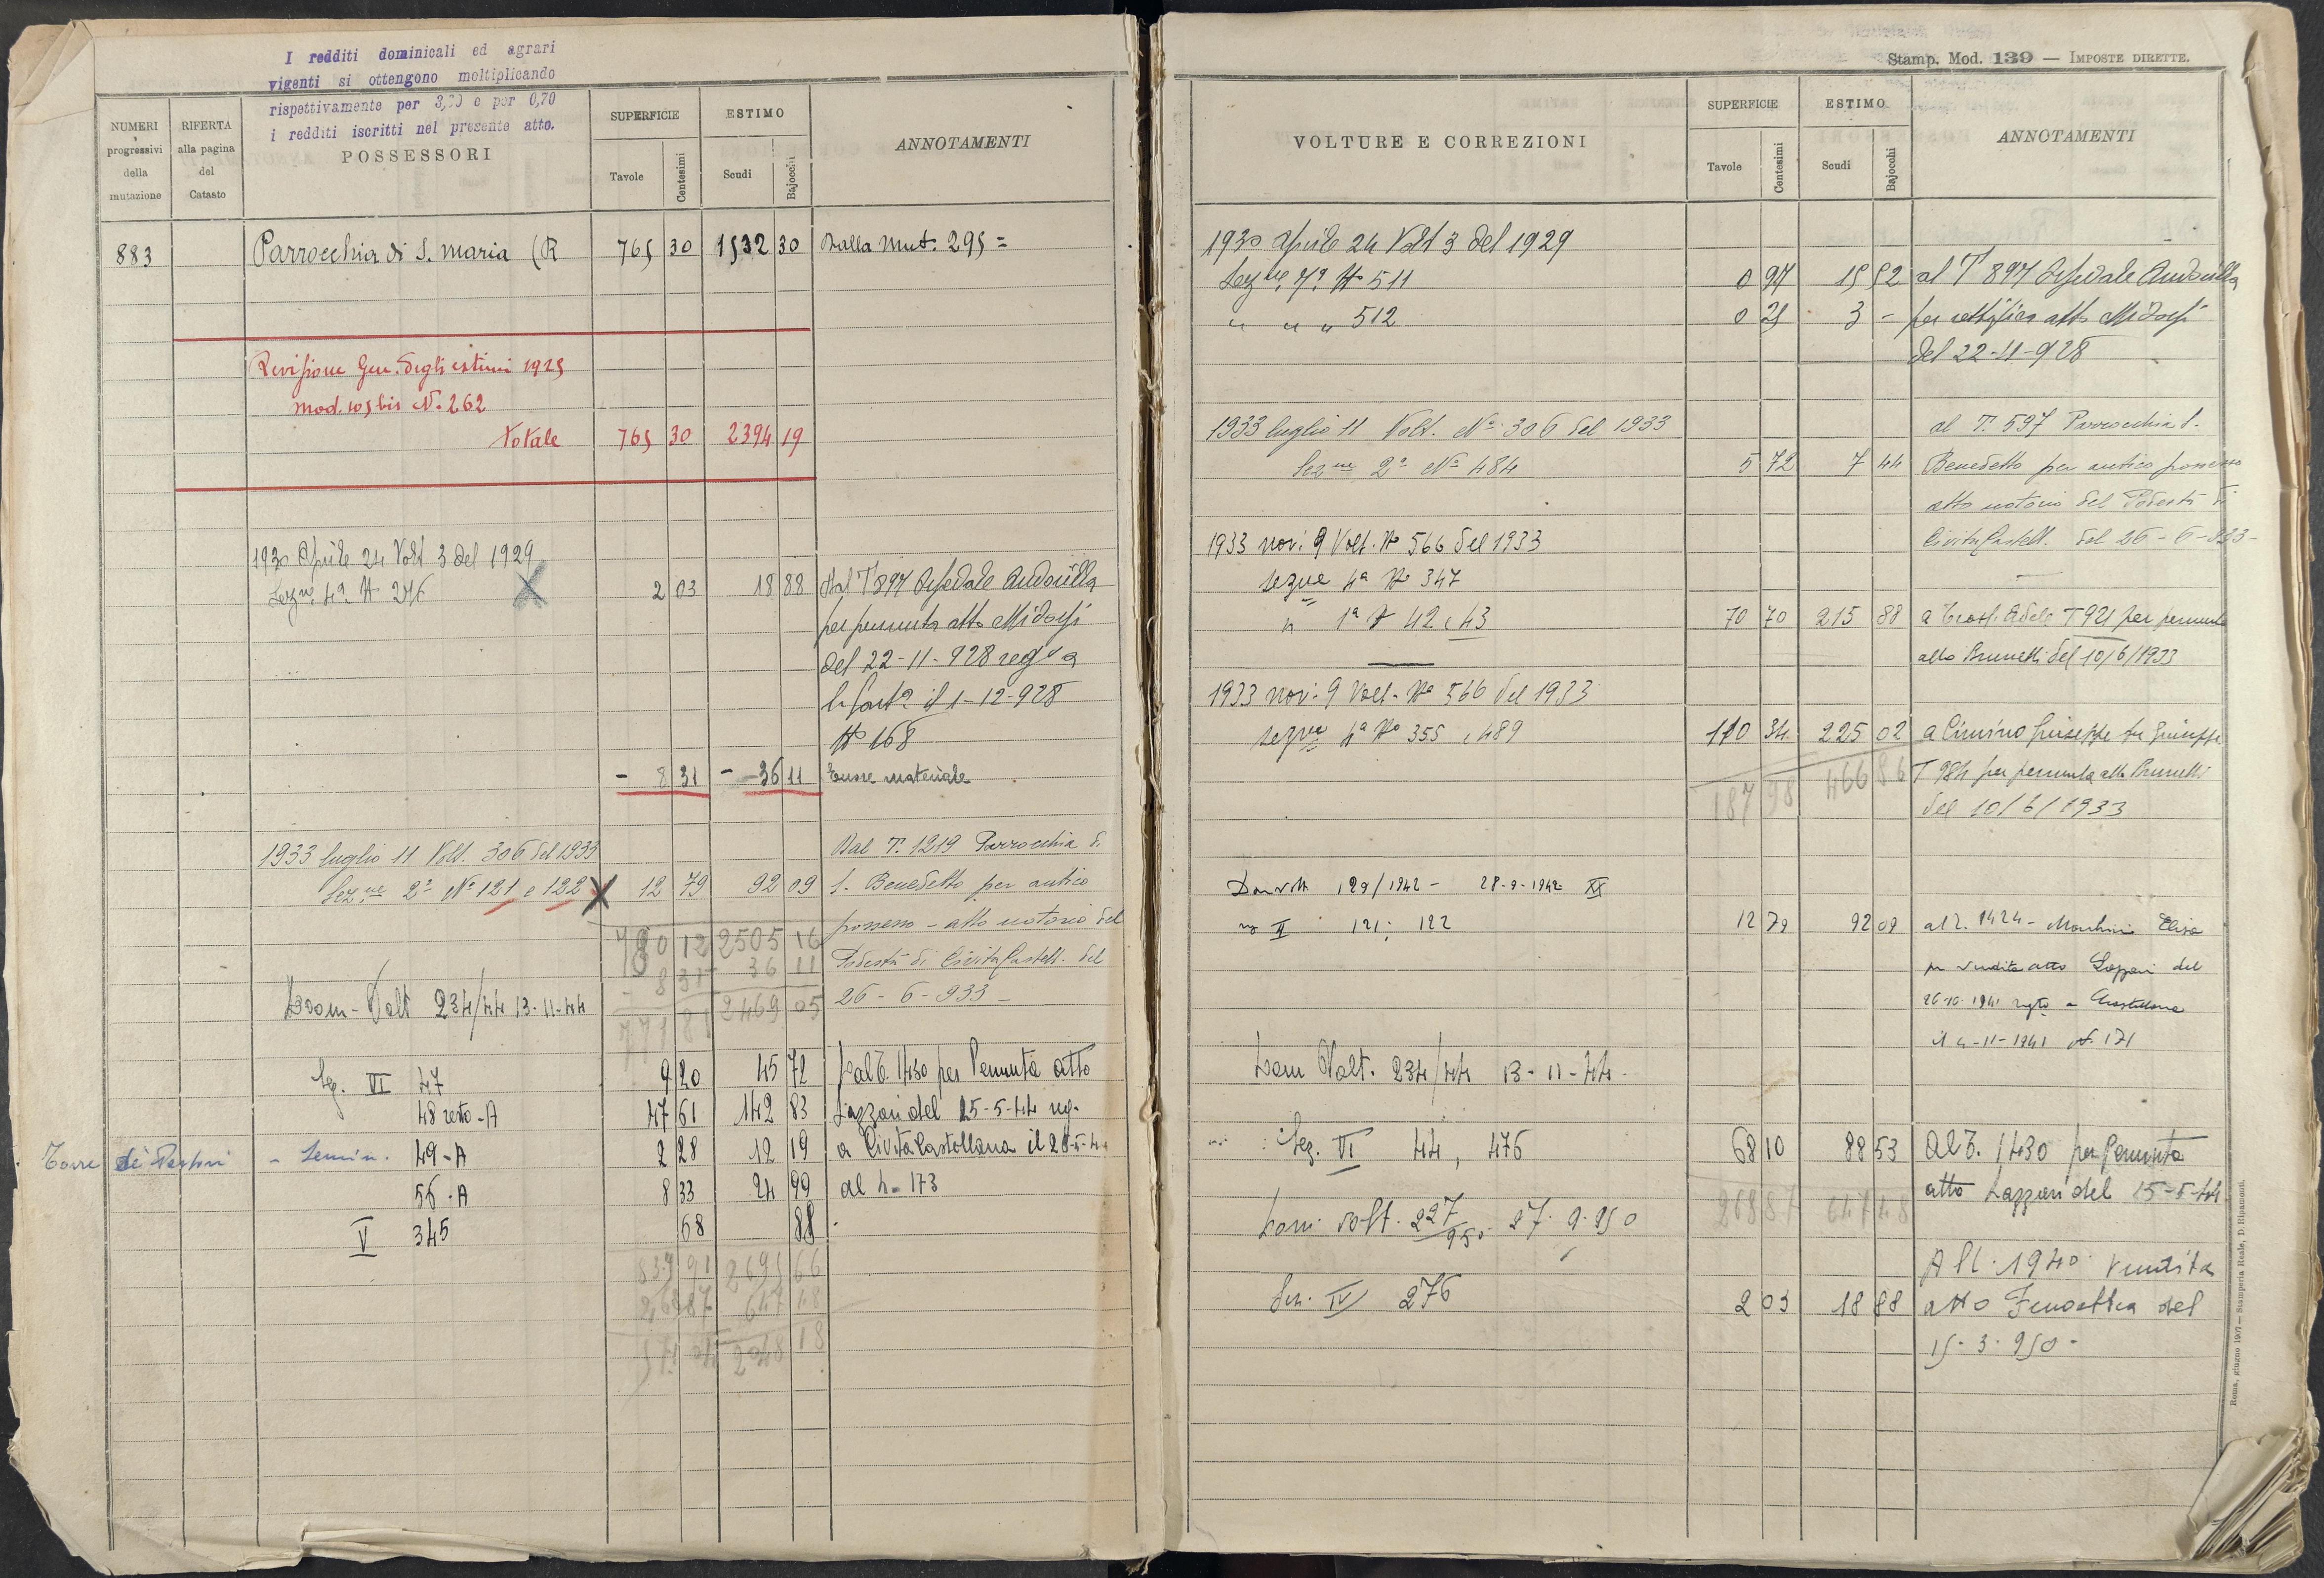 I redditi dominicali ed agrari
vigenti si ottengono moltiplicando
rispettivamente per 3,20 e per 0,70
i redditi iscritti nel presente atto.
NUMERI progressivi della mutazione
RIFERTA alla pagina del Catasto
POSSESSORI
SUPERFICIE
Tavole Centesimi
ESTIMO
Scudi Bajocchi
ANNOTAMENTI
883 Parrocchia di S. Maria (R 765 30 1532 30 Dalla Mut. 295 =
Revisione Gen. degli estimi 1925
mod. 105 bis N. 262
Totale 765 30 2394 19
1930 Aprile 24 Volt 3 del 1929
Sezne 4a N 276 2 03 18 88 dal T 897 Ospedale Andosilla
per permuta atto Midossi
del 22-11-928 regto a
il 1-12-928
No 168
- 8 31 - 36 11 Errore materiale
1933 luglio 11 Volt. 306 del 1933 Dal T. 1219 Parrocchia di
Sezne 2a No 121 e 122 12 79 92 09 S. Benedetto per antico
possesso - atto notorio del
780 12 2505 16
8 31 36 11 Podestà di Civita Castell. del
771 81 2469 05 26-6-933-
Dom-Volt 234/44 13-11-44
Sez. VI 47 9 20 45 72 Dal T. 1430 per Permuta atto
48 resto-A 47 61 142 83 Lazzari del 25-5-44 reg.
Torre dei Pastori - Semin. 49-A 2 28 12 19 a Civita Castellana il 28-5-44
56-A 8 33 24 99 al n. 173
V 345 68 88
839 91 2695 66
268 87 647 48
571 04 2048 18
Stamp. Mod. 139 — IMPOSTE DIRETTE.
VOLTURE E CORREZIONI
SUPERFICIE
Tavole Centesimi
ESTIMO
Scudi Bajocchi
ANNOTAMENTI
1930 Aprile 24 Volt 3 del 1929
Sezne 7a N 511 0 97 15 52 al T 897 Ospedale Andosilla
" " " 512 0 25 3 - per rettifica atto Midossi
del 22-11-928
1933 luglio 11 Volt. No 306 del 1933 al T. 597 Parrocchia S.
Sezne 2a No 484 5 72 7 44 Benedetto per antico possesso
atto notorio del Podestà di
Civita Castell. del 26-6-933-
1933 nov. 9 Volt. No 566 del 1933
sezne 4a No 347
" 1a N 42 e 43 70 70 215 88 a Adele T 921 per permuta
atto Brunelli del 10/6/1933
1933 nov. 9 Volt. No 566 del 1933
sezne 4a No 355 e 489 110 34 225 02 a Cimino Giuseppe fu Giuseppe
187 98 466 86 T 984 per permuta atto Brunelli
del 10/6/1933
Dom volt 129/1942 - 28-9-1942 XX
sez II 121; 122 12 79 92 09 al T. 1424 - Elisa
per vendita atto Lazzari del
26-10-1941 regto a Civitacastellana
il 4-11-1941 N. 171
Dom Volt. 234/44 13-11-44-
Sez. VI 44, 476 68 10 88 53 Al T. 1430 per Permuta
atto Lazzari del 25-5-44
268 87 647 48
Dom. Volt. 227/950 27.9.950
Al T. 1940 vendita
Sez. IV 276 2 03 18 88 atto del
15.3.950-
Roma, giugno 1907 — Stamperia Reale, D. Ripamonti.